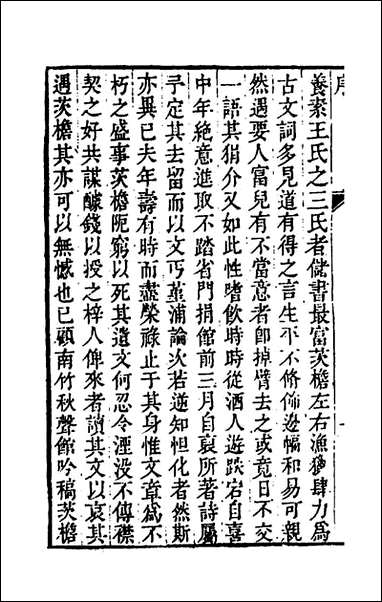 序
養素王氏之三氏者儲書最富茨檐左右漁獵肆力爲
古文詞多見道有得之言生平不脩佈邊幅和易可親
然遇要人富兒有不當意者卽掉臂去之或竟日不交
一語其狷介又如此性嗜飲時時從酒人遊跌宕自喜
中年絶意進取不踏省門捐館前三月自裒所著詩屬
予定其去留而以文丐堇浦論次若逆知怛化者然斯
亦異已夫年壽有時而盡榮祿止于其身惟文章爲不
朽之盛事茨檐阨窮以死其遺文何忍令湮没不傳襟
契之好共謀醵錢以授之梓人俾來者讀其文以哀其
遇茨檐其亦可以無憾也已顧南竹秋聲館吟稿茨檐